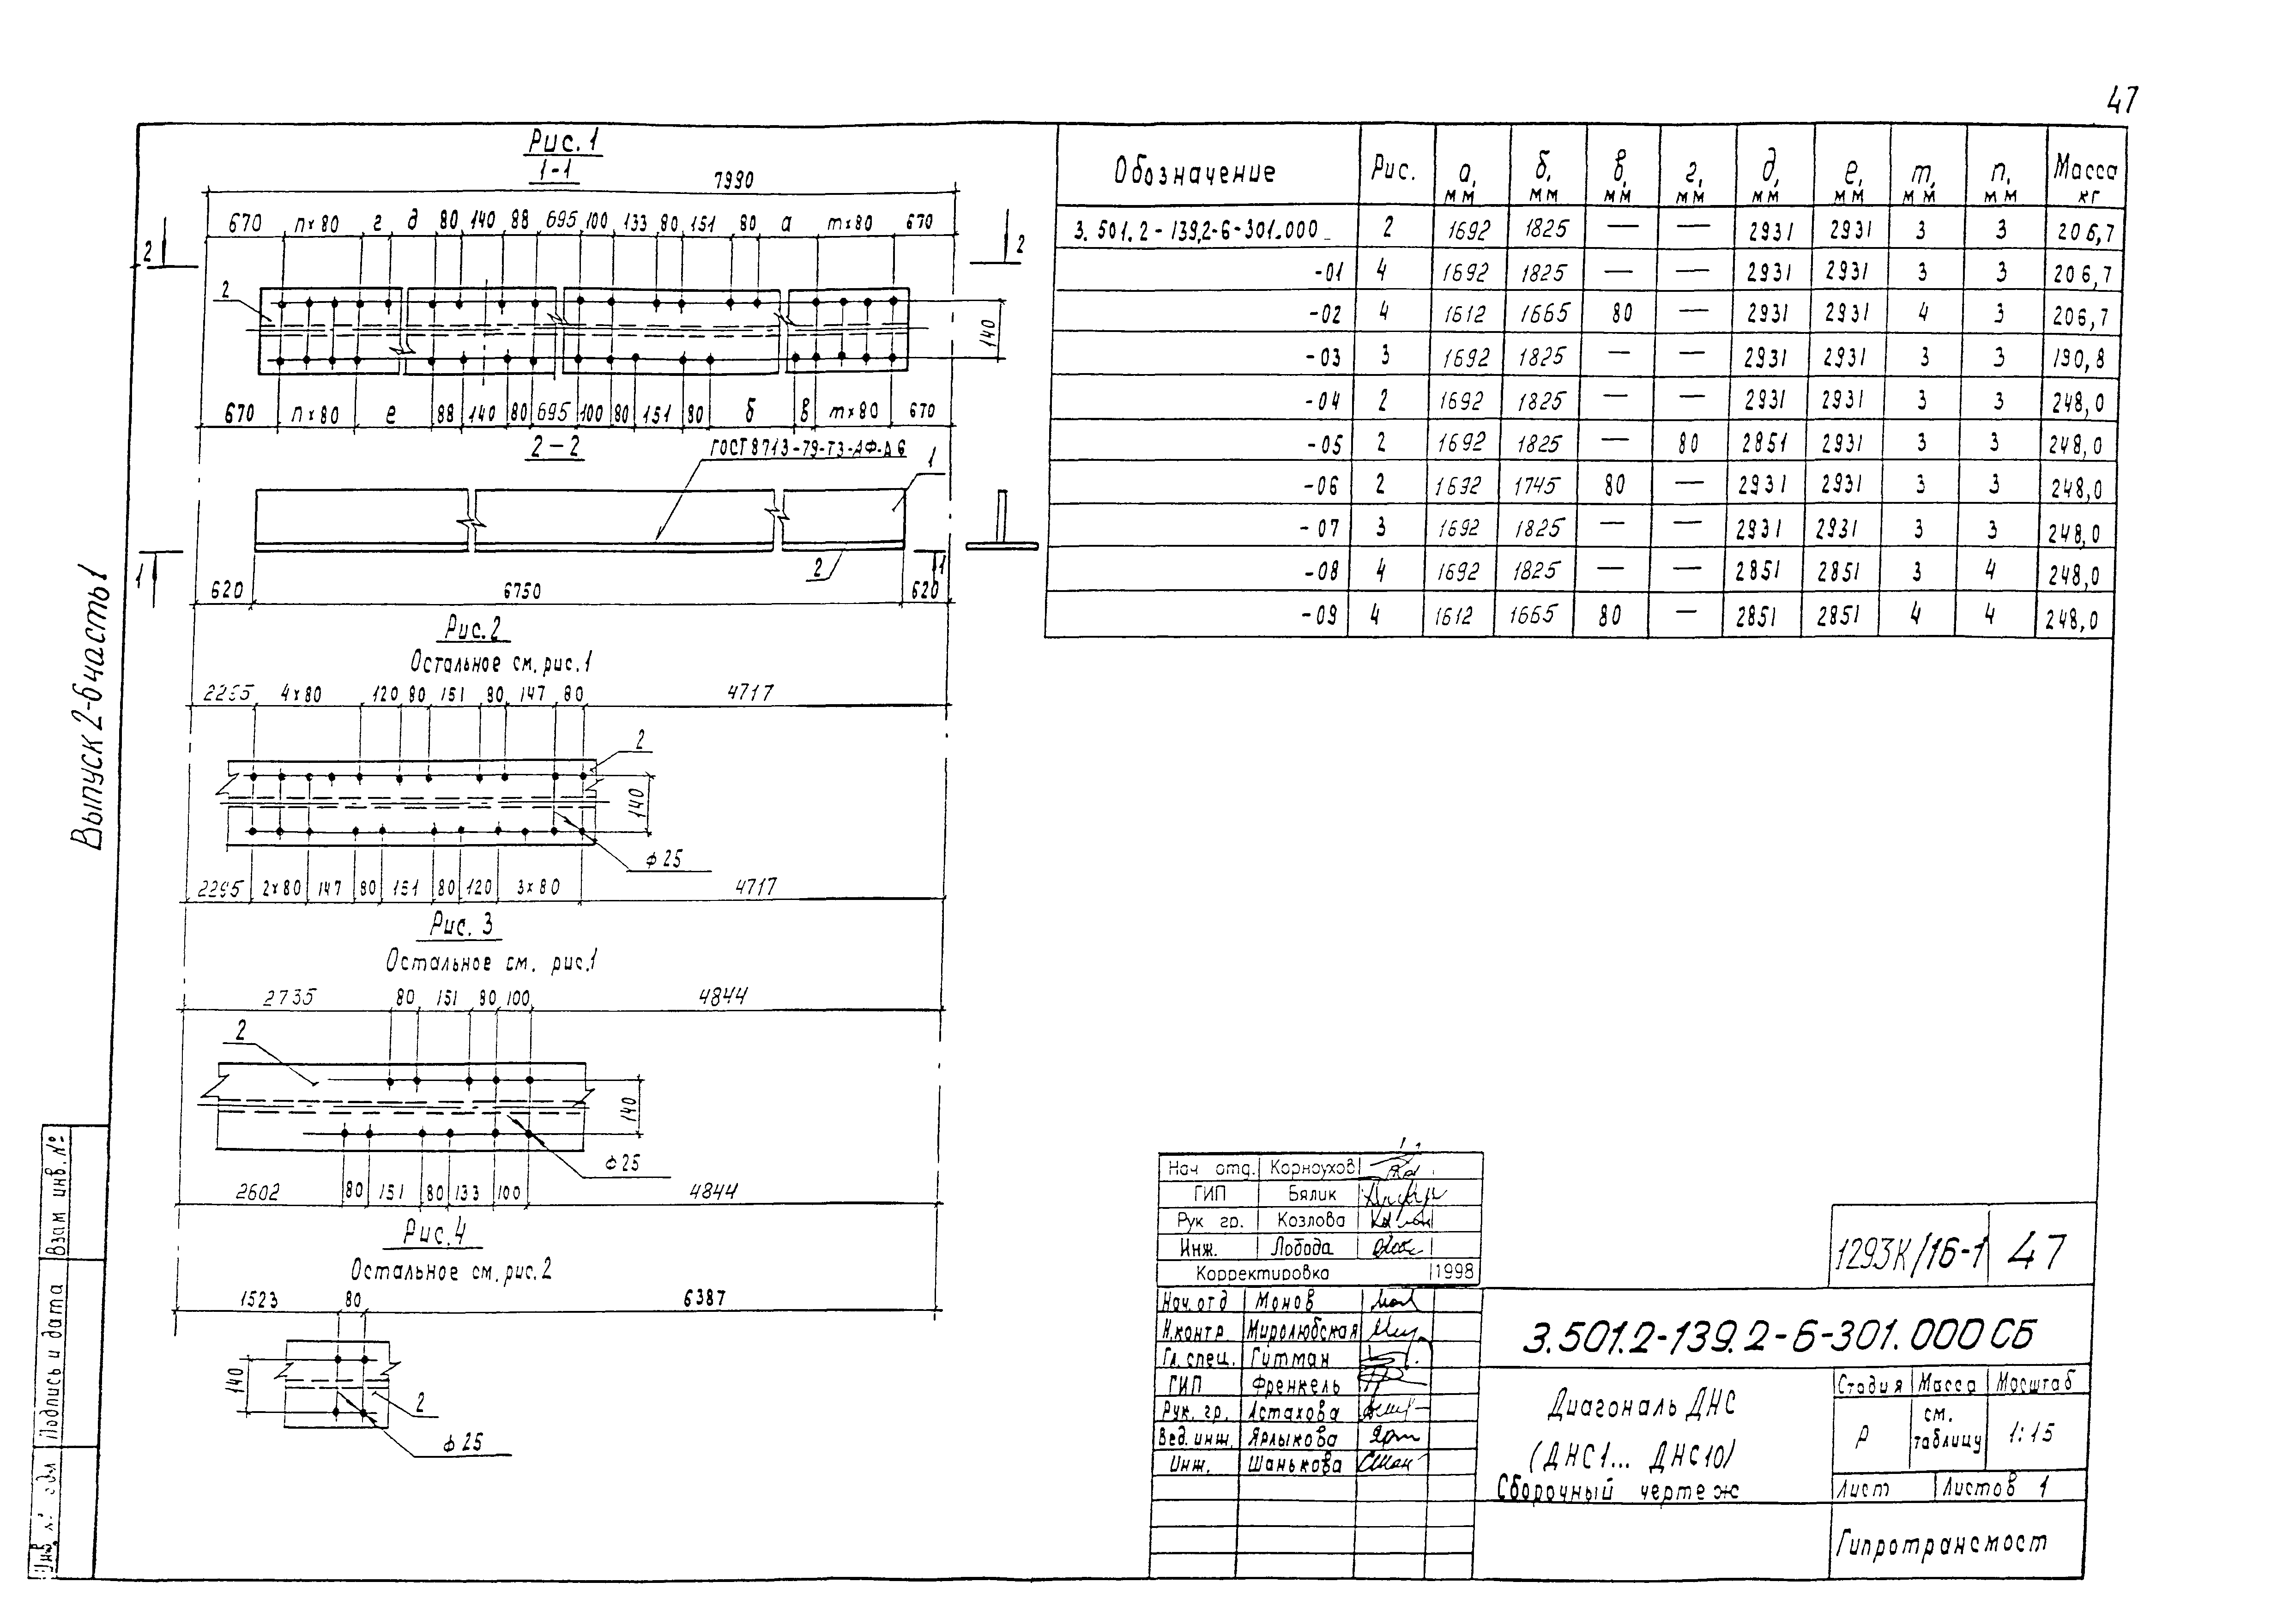 47
Рис. 1
1-1
7990
670 n×80 г д 80 140 88 695 100 133 80 151 80 а m×80 670
2 2
2
140
670 n×80 е 88 140 80 695 100 80 151 80 б в m×80 670
2-2
ГОСТ 8713-79-Т3-АФ-Δ6
1
2
1 1
620 6750 620
Рис. 2
Остальное см. рис. 1
2295 4×80 120 80 151 80 147 80 4717
2
140
ф25
2295 2×80 147 80 151 80 120 3×80 4717
Рис. 3
Остальное см. рис. 1
2735 80 151 80 100 4844
2
140
ф25
2602 80 151 80 133 100 4844
Рис. 4
Остальное см. рис. 2
1523 80 6387
140
2
ф25
Обозначение Рис. а, мм б, мм в, мм г, мм д, мм е, мм m, мм n, мм Масса кг
3.501.2-139.2-6-301.000 2 1692 1825 — — 2931 2931 3 3 206,7
-01 4 1692 1825 — — 2931 2931 3 3 206,7
-02 4 1612 1665 80 — 2931 2931 4 3 206,7
-03 3 1692 1825 — — 2931 2931 3 3 190,8
-04 2 1692 1825 — — 2931 2931 3 3 248,0
-05 2 1692 1825 — 80 2851 2931 3 3 248,0
-06 2 1692 1745 80 — 2931 2931 3 3 248,0
-07 3 1692 1825 — — 2931 2931 3 3 248,0
-08 4 1692 1825 — — 2851 2851 3 4 248,0
-09 4 1612 1665 80 — 2851 2851 4 4 248,0
Выпуск 2-6 часть 1
Взам инв. №
Подпись и дата
Инв. № подл
Нач отд. Корноухов
ГИП Бялик
Рук гр. Козлова
Инж. Лобода
Корректировка 1998
Нач. отд Монов
Н.контр. Миролюбская
Гл. спец. Гитман
ГИП Френкель
Рук. гр. Астахова
Вед. инж. Ярлыкова
Инж. Шанькова
1293К/16-1 47
3.501.2-139.2-6-301.000 СБ
Диагональ ДНС
(ДНС1... ДНС10)
Сборочный чертеж
Стадия Масса Масштаб
Р см. таблицу 1:15
Лист Листов 1
Гипротрансмост